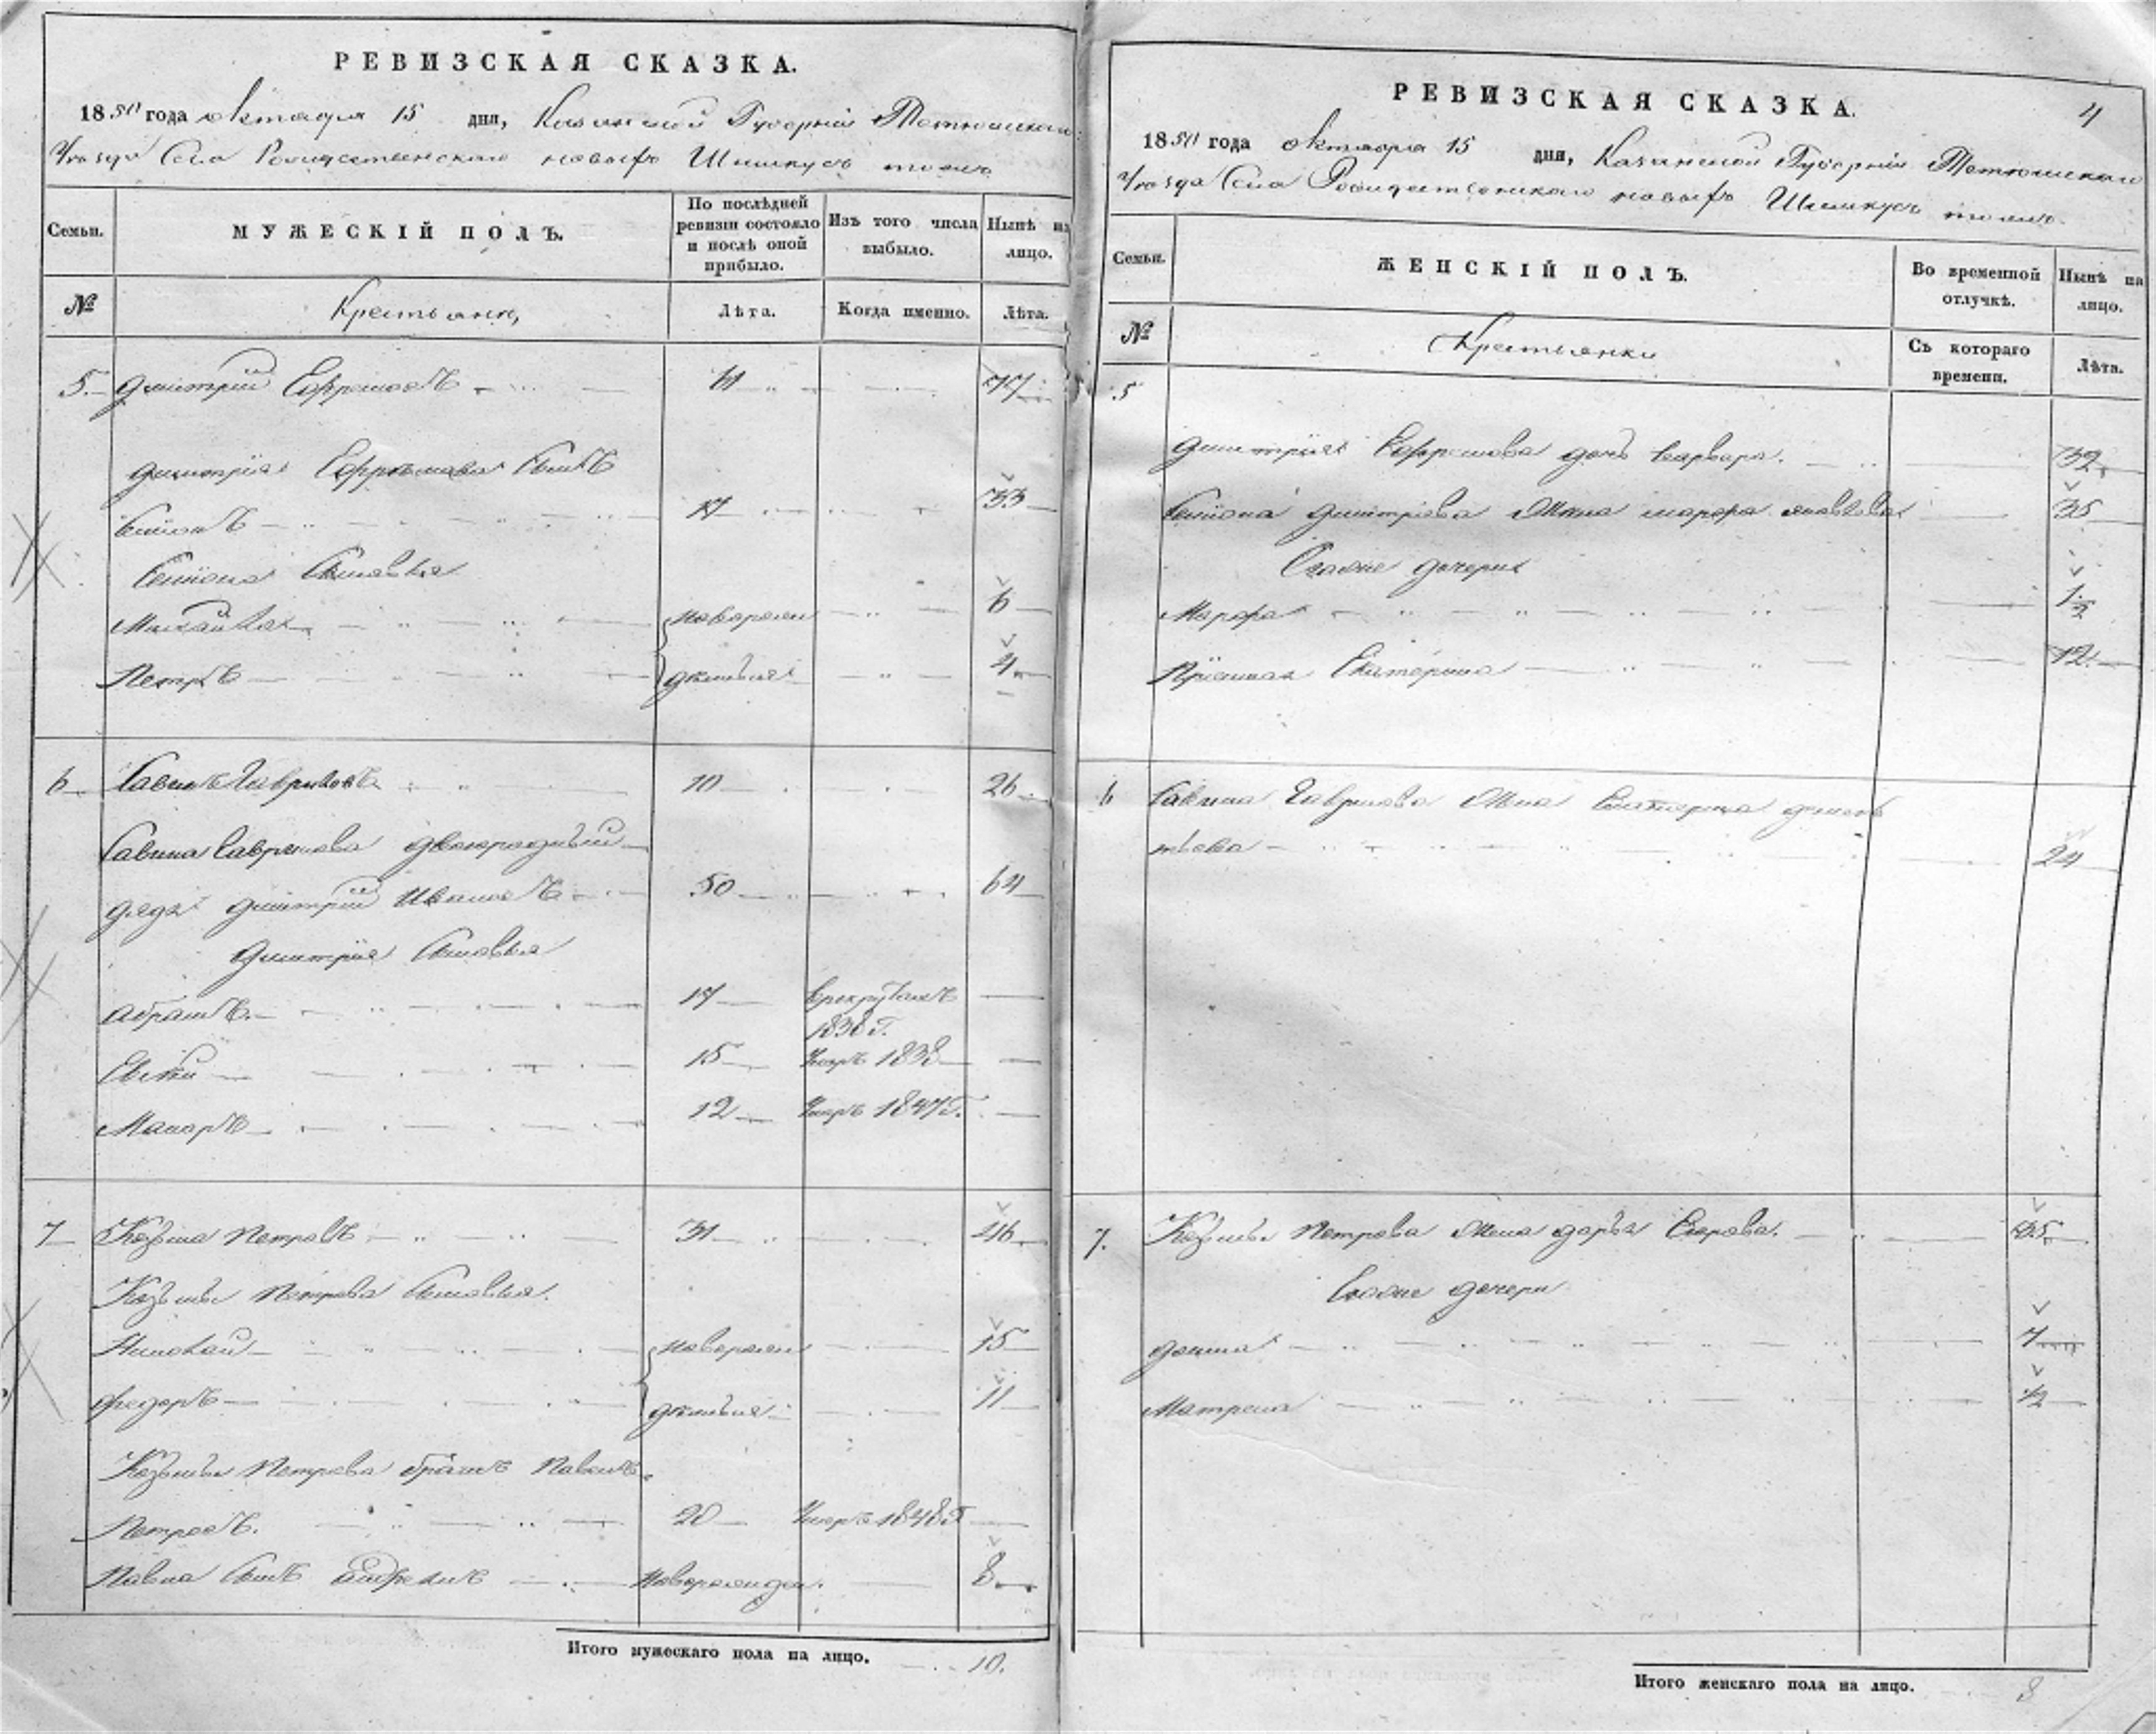 РЕВИЗСКАЯ СКАЗКА.
1850 года Октября 15 дня, Казанской Губернии Тетюшскаго
Уезда Села Рождественскаго новыхъ
Семьи.
МУЖЕСКІЙ ПОЛЪ.
По послѣдней
ревизіи состояло
и послѣ оной
прибыло.
Изъ того числа
выбыло.
Нынѣ на
лицо.
№
Крестьяне,
Лѣта.
Когда именно.
Лѣта.
5. Дмитрий Ефремовъ 61 77
Дмитрия Ефремова сынъ
Семионъ 17 33
Семиона сыновья
Михайла новорож 6
Петръ денныя 4
6 Савинъ Гавриловъ 10 26
Савина Гаврилова двоюродный
дядя Дмитрий Ивановъ 50 64
Дмитрия сыновья
Абрамъ 17 в рекрутахъ
1838 г.
15 Умеръ 1838
Макаръ 12 Умеръ 1847 г.
7 Козьма Петровъ 31 46
Козьмы Петрова сыновья
Николай новорож 15
Федоръ денныя 11
Козьмы Петрова братъ Павелъ
Петровъ. 20 Умеръ 1848 г
Павла сынъ Андреянъ новорожден. 8
Итого мужескаго пола на лицо. 10.
РЕВИЗСКАЯ СКАЗКА.
4
1850 года Октября 15 дня, Казанской Губернии Тетюшскаго
Уезда Села Рождественскаго новыхъ
Семьи.
ЖЕНСКІЙ ПОЛЪ.
Во временной
отлучкѣ.
Нынѣ на
лицо.
№
Крестьянки
Съ котораго
времени.
Лѣта.
5
Дмитрия Ефремова дочь Варвара. 32
Семиона Дмитриева жена Марфа Яковлева 35
Ево же дочери
Марфа 1/2
Екатерина 12
6 Савина Гаврилова жена Екатерина
24
7. Козьмы Петрова жена Дарья Егорова. 35
Ево же дочери
Домна 7
Матрена 1/2
Итого женскаго пола на лицо. 8